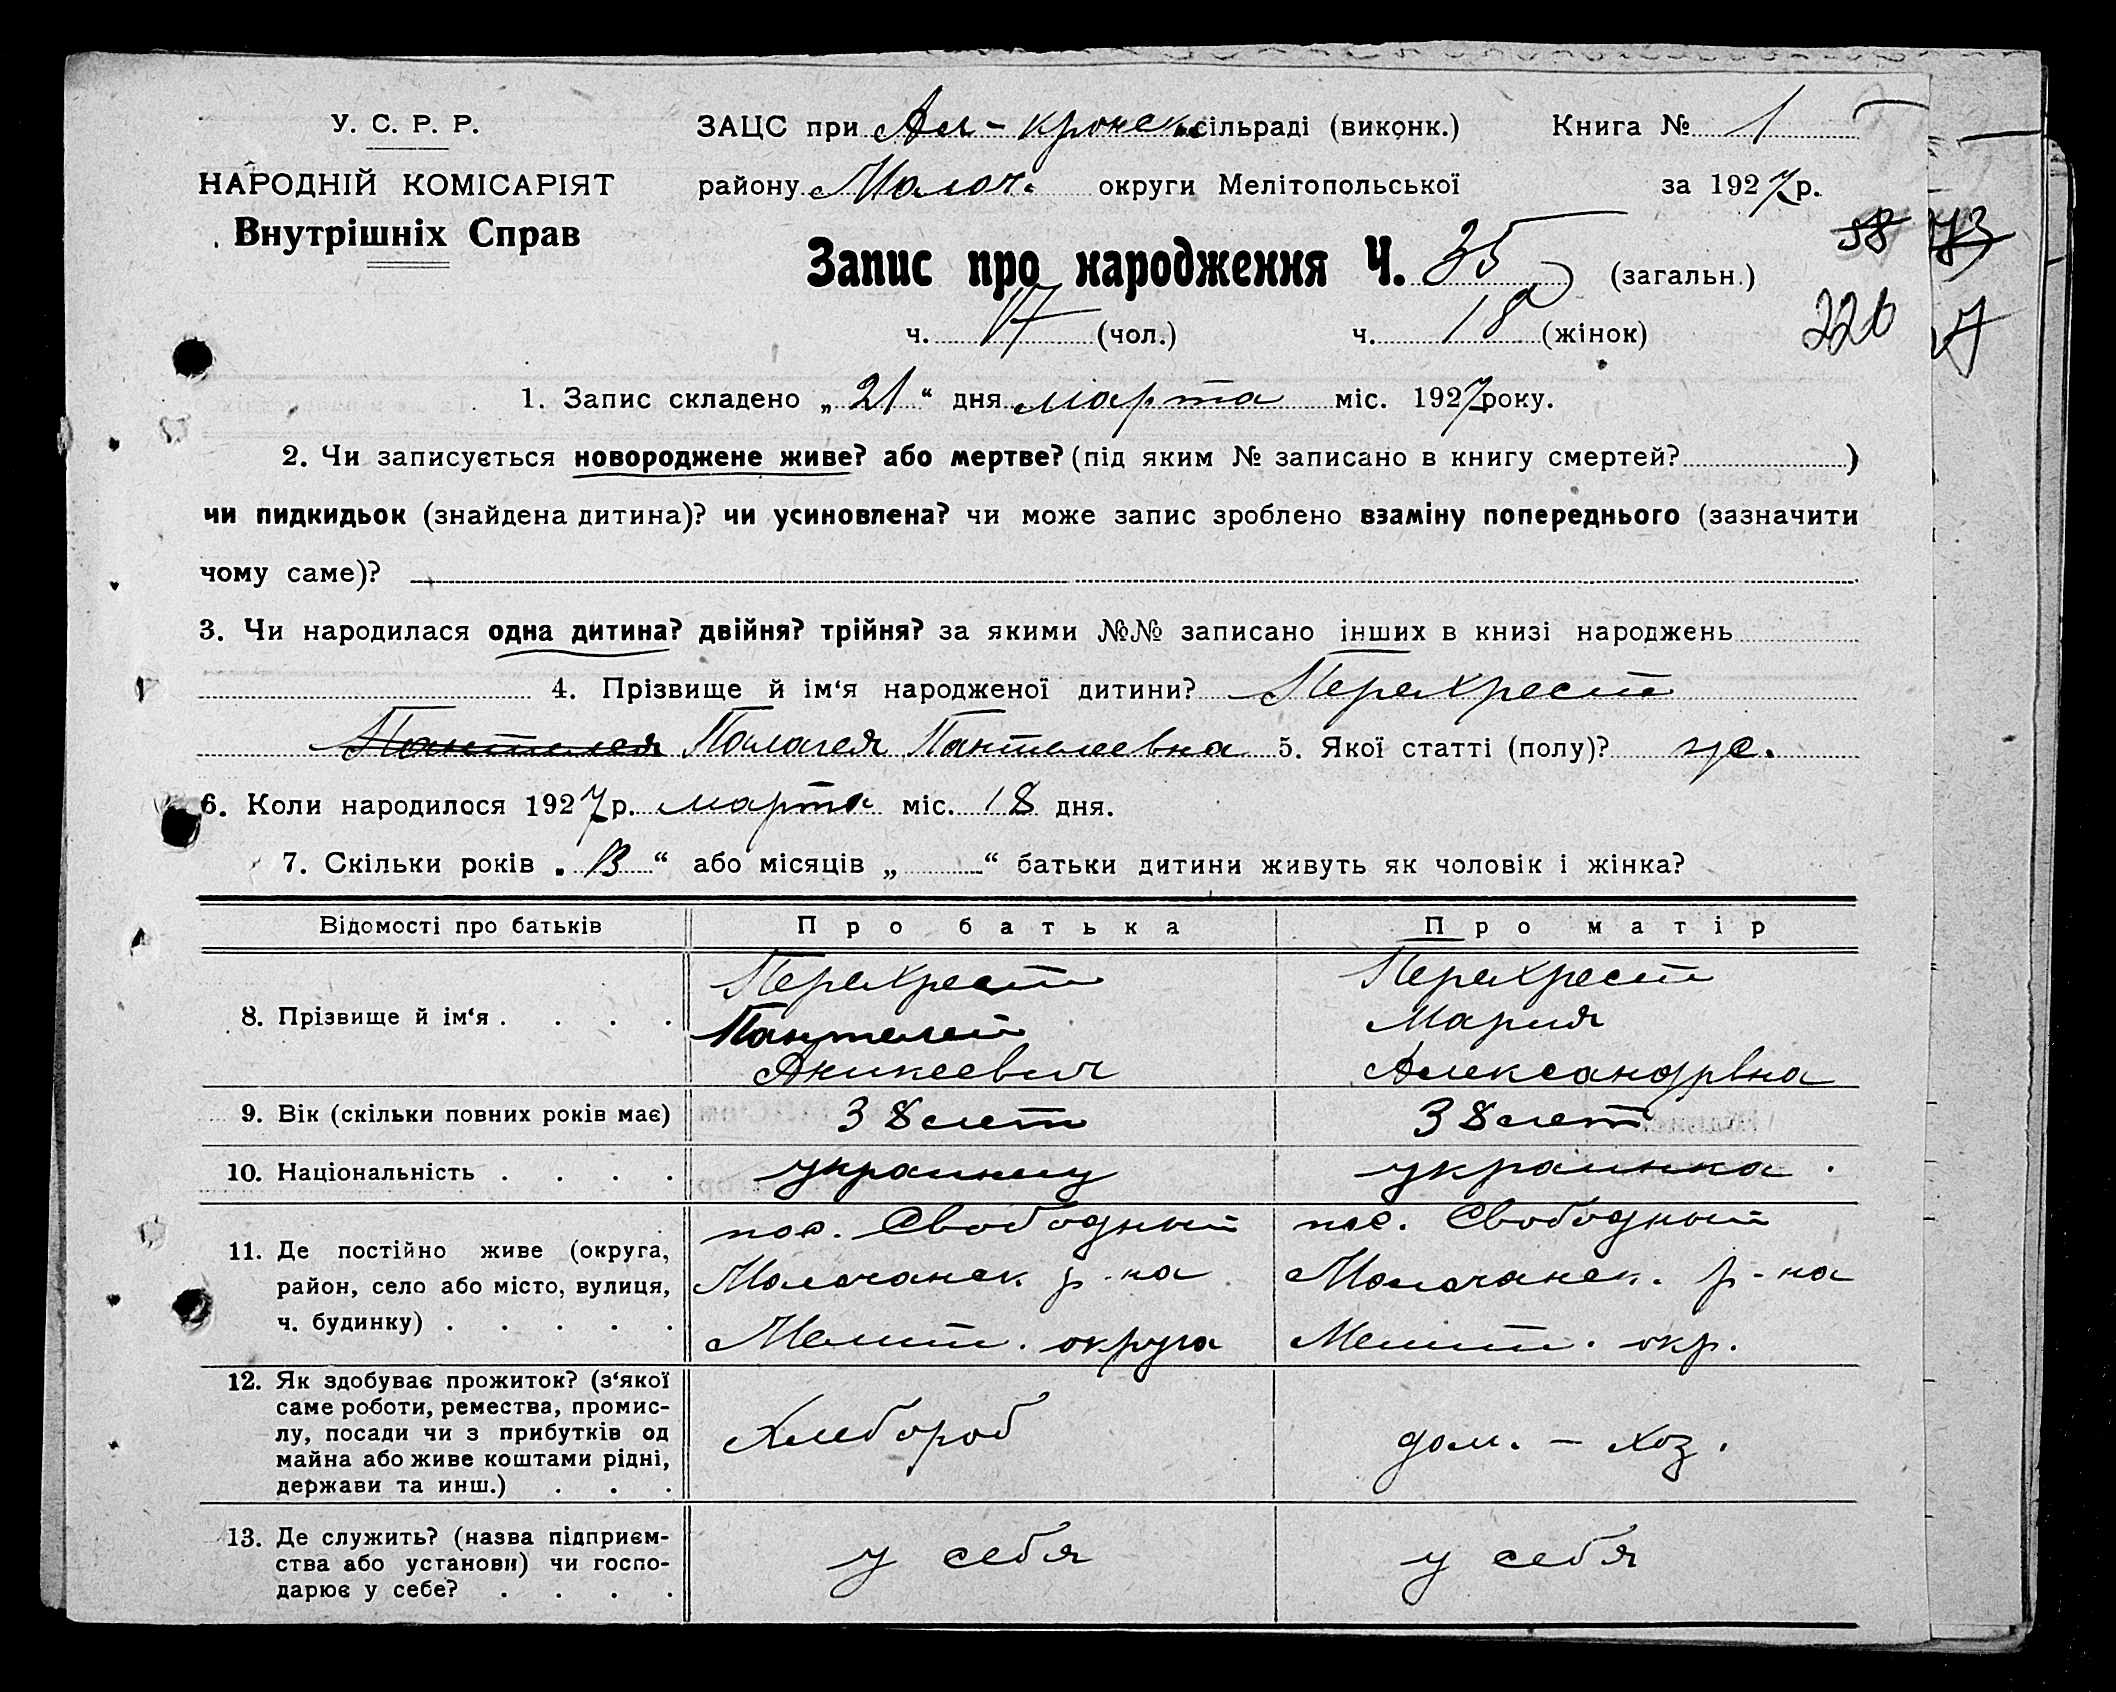 У. С. Р. Р.
НАРОДНІЙ КОМІСАРІЯТ
Внутрішніх Справ
ЗАЦС при Ал-кронск сільраді (виконк.) Книга № 1
району Молоч. округи Мелітопольської за 1927 р.
Запис про народження Ч. 35 (загальн.)
58 73
ч. 17 (чол.) ч. 18 (жінок)
226
1. Запис складено „ 21 “ дня марта міс. 1927 року.
2. Чи записується новороджене живе? або мертве? (під яким № записано в книгу смертей? )
чи пидкидьок (знайдена дитина)? чи усиновлена? чи може запис зроблено взаміну попереднього (зазначити
чому саме)?
3. Чи народилася одна дитина? двійня? трійня? за якими №№ записано інших в книзі народжень
4. Прізвище й ім‘я народженої дитини? Перехрест
Пантелея Полагея Пантелеевна 5. Якої статті (полу)? же.
6. Коли народилося 1927 р. марта міс. 18 дня.
7. Скільки років „ 13 “ або місяців „ “ батьки дитини живуть як чоловік і жінка?
Відомості про батьків Про батька Про матір
8. Прізвище й ім‘я . . . .
Перехрест
Пантелей
Аникеевич
Перехрест
Мария
Александрвна
9. Вік (скільки повних років має) 38 лет 38 лет
10. Національність . . . . украинец украинка
11. Де постійно живе (округа,
район, село або місто, вулиця,
ч. будинку) . . . . .
пос. Свободный
Молочанск р-на
Мелит. округа
пос. Свободный
Молочанск. р-на
Мелит. окр.
12. Як здобуває прожиток? (з‘якої
саме роботи, ремества, промис-
лу, посади чи з прибутків од
майна або живе коштами рідні,
держави та инш.) . . .
Хлебороб
дом. - хоз.
13. Де служить? (назва підприєм-
ства або установи) чи госпо-
дарює у себе? . . . .
у себя
у себя